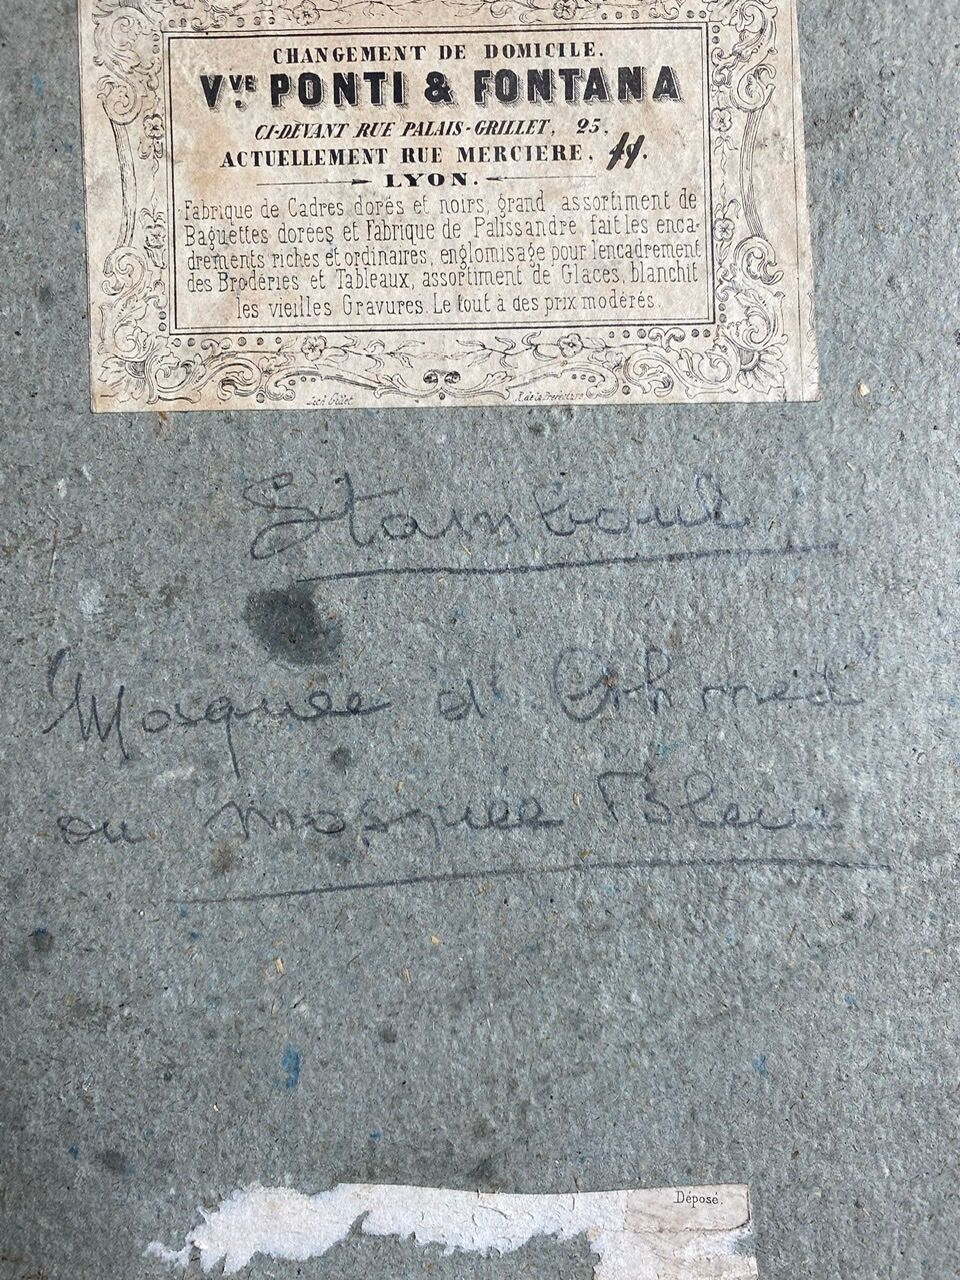 CHANGEMENT DE DOMICILE.
VVE PONTI & FONTANA
CI-DEVANT RUE PALAIS-GRILLET, 25,
ACTUELLEMENT RUE MERCIERE,
LYON.
Fabrique de Cadres dorés et noirs, grand assortiment de
Baguettes dorées et Fabrique de Palissandre, fait les enca-
drements riches et ordinaires, englomisage pour lencadrement
des Broderies et Tableaux, assortiment de Glaces, blanchit
les vieilles Gravures. Le tout à des prix modérés.
Stamboul
"Mosquée d'Ahmed"
ou mosquée Bleue
Déposé.